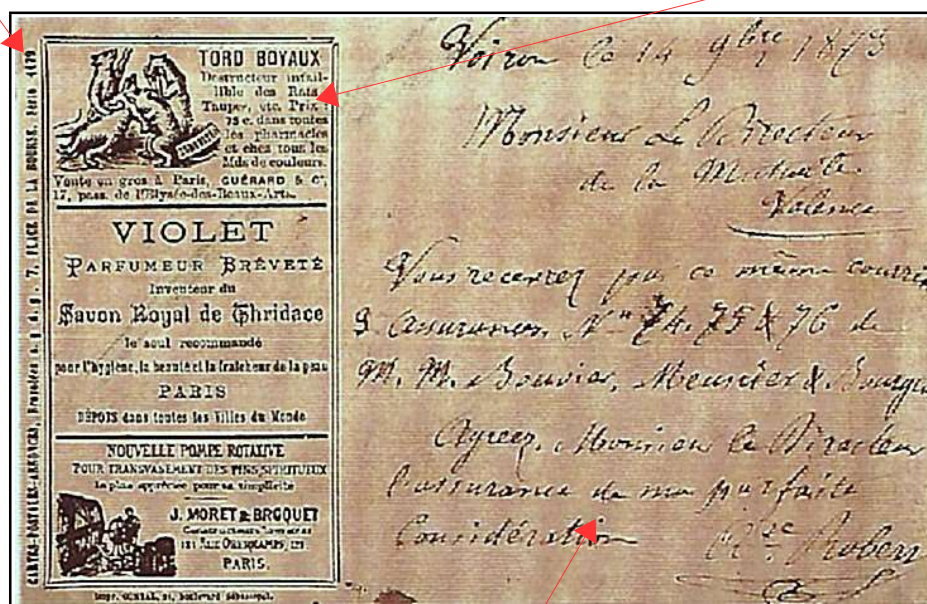 CARTES-POSTALES-ANNONCES, Brevetées s. g. d. g. 7, PLACE DE LA BOURSE, Paris
TORD BOYAUX
Destructeur infail-
lible des Rats
Taupes, etc. Prix :
75 c. dans toutes
les pharmacies
et chez tous les
Mds de couleurs.
Vente en gros à Paris, GUÉRARD & Cⁱᵉ,
17, pass. de l'Elysée-des-Beaux-Arts.
VIOLET
PARFUMEUR BRÉVETÉ
Inventeur du
Savon Royal de Thridace
le seul recommandé
pour l'hygiène, la beauté et la fraîcheur de la peau
PARIS
DÉPOTS dans toutes les Villes du Monde
NOUVELLE POMPE ROTATIVE
POUR TRANSVASEMENT DES VINS, SPIRITUEUX
la plus appréciée pour sa simplicité
J. MORET & BROQUET
121 RUE OBERKAMPF, 121
PARIS.
boulevard Sébastopol.
Voiron le 14 9bre 1873
Monsieur Le Directeur
de la Mutuelle
Valence
Vous recevrez par ce même courrier
3 assurances Nos 74. 75 & 76 de
M. M. Bouvier, Meunier &
Agréez, Monsieur le Directeur
l'assurance de ma parfaite
Considération
Robert